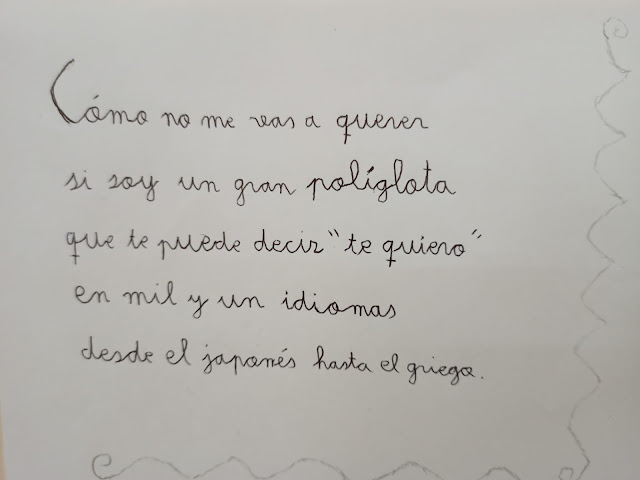 Cómo no me vas a querer
si soy un gran políglota
que te puede decir "te quiero"
en mil y un idiomas
desde el japonés hasta el griego.